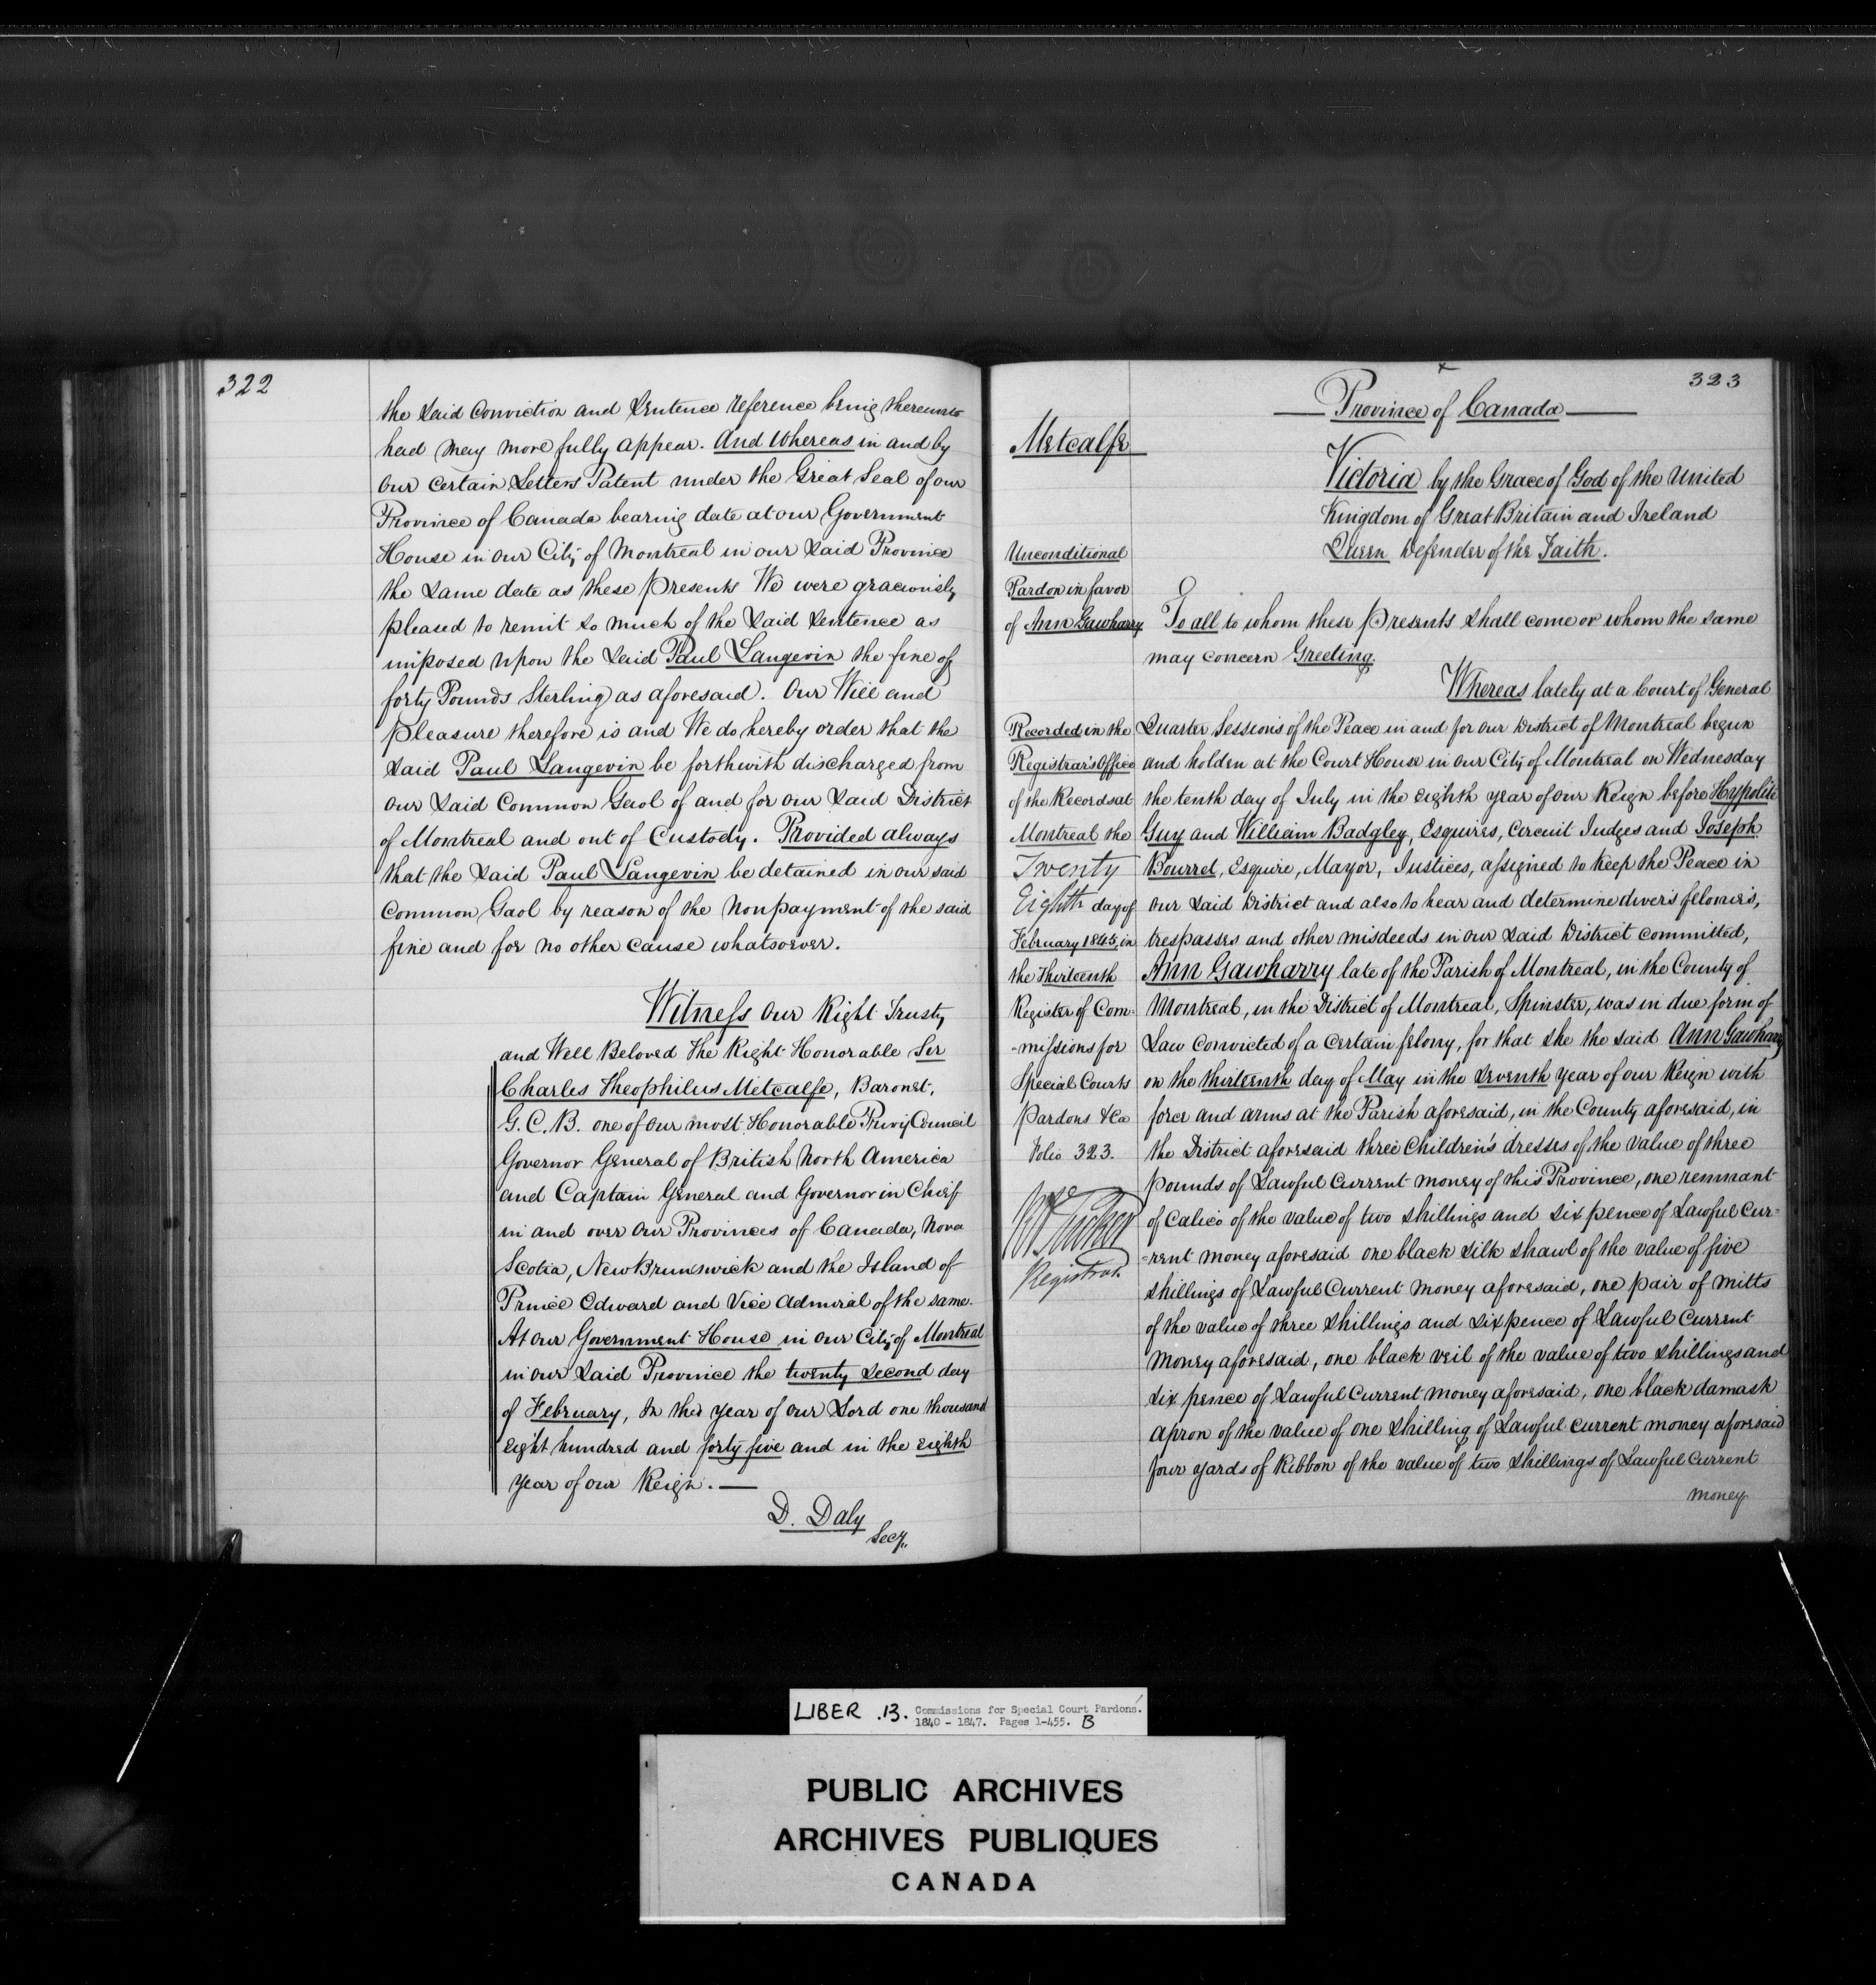 322
the said Conviction and Sentence reference being thereunto
had may more fully appear. And Whereas in and by
our certain Letters Patent under the Great Seal of our
Province of Canada bearing date at our Government
House in our City of Montreal in our said Province
the same date as these presents We were graciously
pleased to remit so much of the said Sentence as
imposed upon the said Paul Langevin the fine of
forty Pounds Sterling as aforesaid. Our Will and
pleasure therefore is and We do hereby order that the
said Paul Langevin be forthwith discharged from
our said Common Gaol of and for our said District
of Montreal and out of Custody. Provided always
that the said Paul Langevin be detained in our said
Common Gaol by reason of the Nonpayment of the said
fine and for no other cause whatsoever.
Witness Our Right Trusty
and Well Beloved The Right Honorable Sir
Charles Theophilus Metcalfe, Baronet,
G.C.B. one of our most Honorable Privy Council
Governor General of British North America
and Captain General and Governor in Chief
in and over our Provinces of Canada, Nova
Scotia, New Brunswick and the Island of
Prince Edward and Vice Admiral of the same.
At our Government House in our City of Montreal
in our said Province the twenty second day
of February, In the year of our Lord one thousand
eight hundred and forty five and in the eighth
year of our Reign. —
D. Daly
Secy.
323
Province of Canada
Metcalfe
Victoria by the Grace of God of the United
Kingdom of Great Britain and Ireland
Queen Defender of the Faith.
Unconditional
Pardon in favor
of Ann Gawharry
To all to whom these presents shall come or whom the same
may concern Greeting.
Whereas lately at a Court of General
Quarter Sessions of the Peace in and for our District of Montreal begun
and holden at the Court House in our City of Montreal on Wednesday
the tenth day of July in the eighth year of our Reign before Hypolite
Guy and William Badgley, Esquires, Circuit Judges and Joseph
Bourret, Esquire, Mayor, Justices, assigned to keep the Peace in
our said District and also to hear and determine divers felonies,
trespasses and other misdeeds in our said District committed,
Ann Gawharry late of the Parish of Montreal, in the County of
Montreal, in the District of Montreal, Spinster, was in due form of
Law convicted of a certain felony, for that she the said Ann Gawharry
on the thirteenth day of May in the seventh year of our Reign with
force and arms at the Parish aforesaid, in the County aforesaid, in
the District aforesaid three Children's dresses of the value of three
pounds of Lawful Current money of this Province, one remnant
of Calico of the value of two shillings and six pence of Lawful Cur=
=rent money aforesaid one black silk shawl of the value of five
shillings of Lawful Current money aforesaid, one pair of mitts
of the value of three shillings and sixpence of Lawful Current
money aforesaid, one black veil of the value of two shillings and
six pence of Lawful Current money aforesaid, one black damask
apron of the value of one shilling of Lawful current money aforesaid
four yards of Ribbon of the value of two shillings of Lawful Current
money
Recorded in the
Registrar's Office
of the Records at
Montreal the
Twenty
Eighth day of
February 1845, in
the Thirteenth
Register of Com=
=missions for
Special Courts
pardons &ca
Folio 323.
Tucker
Registrar.
LIBER .13. Commissions for Special Court Pardons.
1840 - 1847. Pages 1-455. B
PUBLIC ARCHIVES
ARCHIVES PUBLIQUES
CANADA